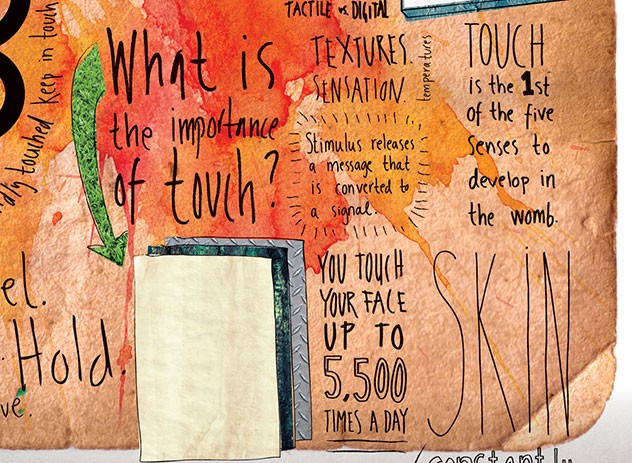 TACTILE vs DIGITAL
keep in touch
touched
What is
the importance
of touch?
TEXTURES.
SENSATION.
temperatures
Stimulus releases
a message that
is converted to
a signal.
TOUCH
is the 1st
of the five
senses to
develop in
the womb.
YOU TOUCH
YOUR FACE
UP TO
5,500
TIMES A DAY
SKIN
Hold.
constantly